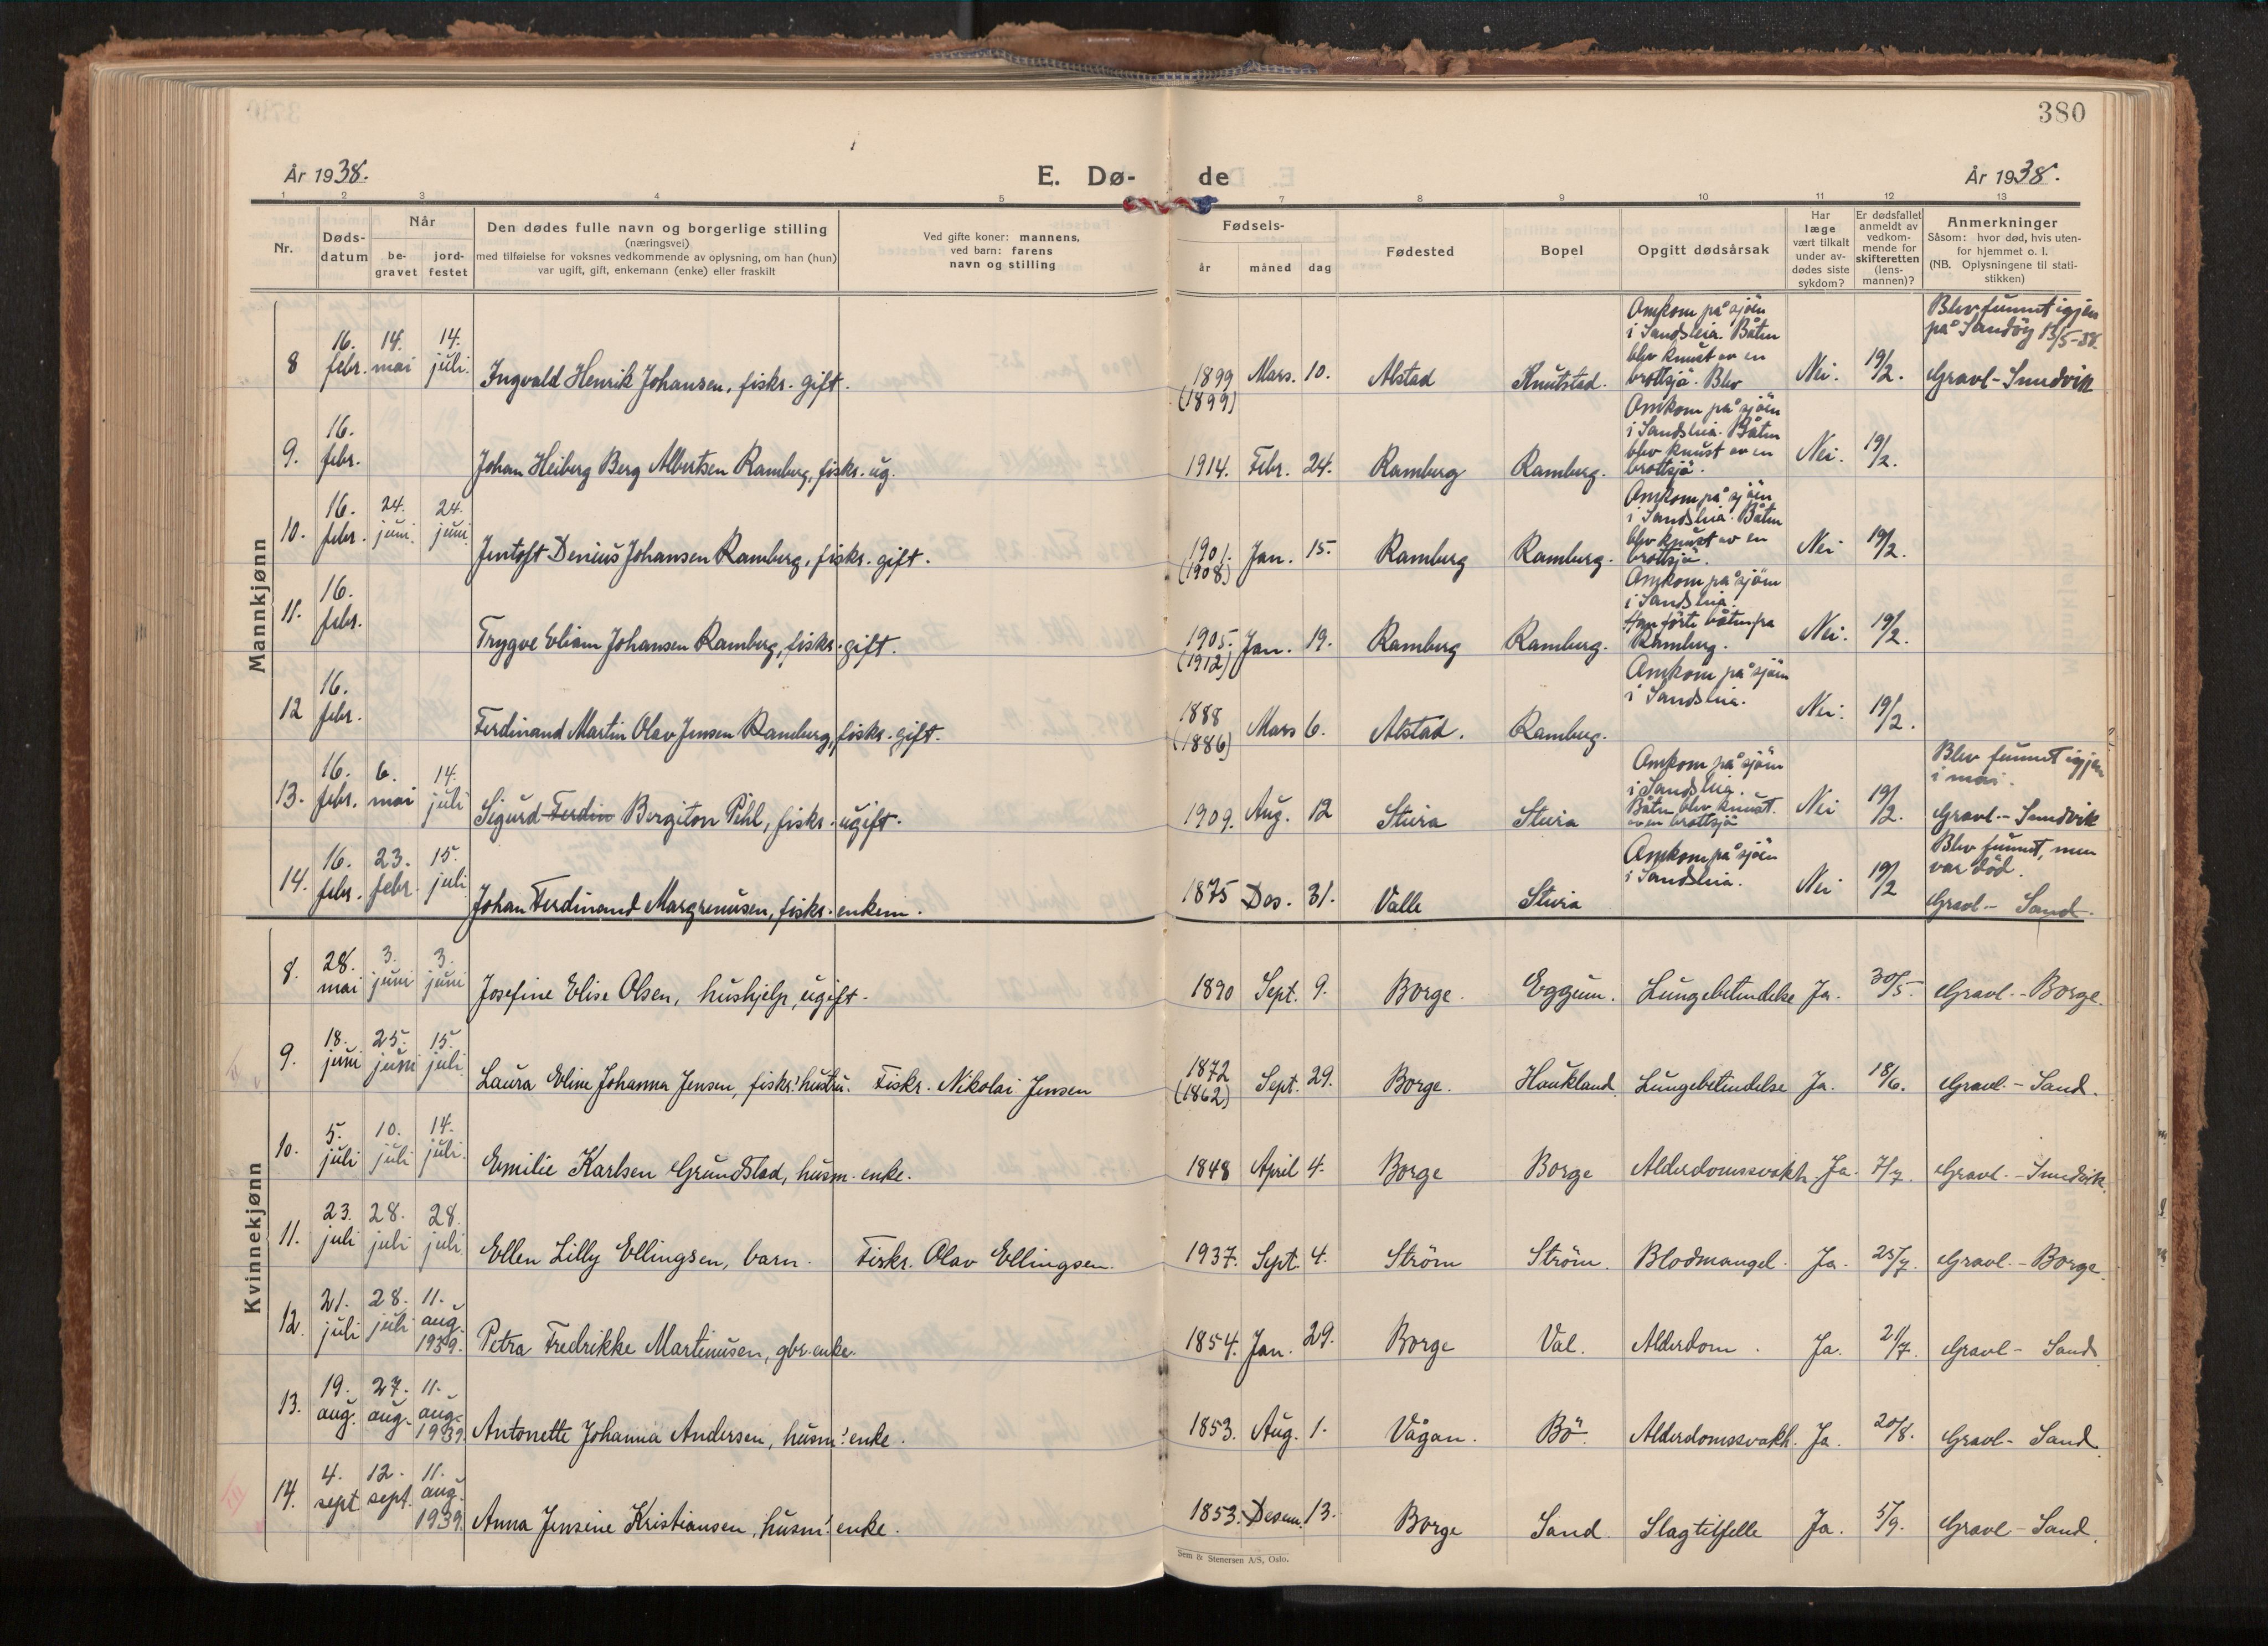 380
År 1938.
E. Dø- de
År 1938.
1 2 3 4 5 7 8 9 10 11 12 13
Nr.
Døds-
datum
Når
be-
gravet
jord-
festet
Den dødes fulle navn og borgerlige stilling
(næringsvei)
med tilføielse for voksnes vedkommende av oplysning, om han (hun)
var ugift, gift, enkemann (enke) eller fraskilt
Ved gifte koner: mannens,
ved barn: farens
navn og stilling
Fødsels-
år måned dag
Fødested
Bopel
Opgitt dødsårsak
Har
læge
vært tilkalt
under av-
dødes siste
sykdom?
Er dødsfallet
anmeldt av
vedkom-
mende for
skifteretten
(lens-
mannen)?
Anmerkninger
Såsom: hvor død, hvis uten-
for hjemmet o. l.
(NB. Oplysningene til stati-
stikken)
Mannkjønn
8
16.
febr.
14.
mai
14.
juli.
Ingvald Henrik Johansen, fisker. gift.
1899
(1899)
Mars. 10.
Alstad
Knutstad.
Omkom på sjöen
i Sandsleia. Båten
blev knust av en
brottsjö. Blev
Nei.
19/2.
Blev funnet igjen
på Sandöy 13/5-38.
Gravl - Sundvik
9.
16.
febr.
Johan Heiberg Berg Albertsen Ramberg, fisker. ug.
1914. Febr. 24.
Ramberg
Ramberg.
Omkom på sjöen
i Sandsleia. Båten
blev knust av en
brottsjö.
Nei.
19/2.
10.
16.
febr.
24.
juni.
24.
juni
Jentoft Denius Johansen Ramberg, fisker. gift.
1901.
(1908)
Jan. 15.
Ramberg
Ramberg.
Omkom på sjöen
i Sandsleia. Båten
blev knust av en
brottsjö.
Nei
19/2.
11.
16.
febr.
Trygve Eliam Johansen Ramberg, fisker. gift.
1905.
(1912)
Jan. 19.
Ramberg
Ramberg.
Omkom på sjöen
i Sandsleia.
Han förte båten fra
Ramberg.
Nei.
19/2.
12
16.
febr.
Ferdinand Martin Olav Jensen Ramberg, fisker. gift.
1888
(1886)
Mars 6.
Alstad.
Ramberg.
Omkom på sjöen
i Sandsleia.
Nei.
19/2.
13.
16.
febr.
6.
mai
14.
juli
Sigurd Ferdin Bergiton Pihl, fisker. ugift.
1909. Aug. 12
Steira
Steira
Omkom på sjöen
i Sandsleia.
Båten blev knust
av en brottsjö
Nei
19/2.
Blev funnet igjen
i mai.
Gravl. - Sundvik
14.
16.
febr.
23.
febr.
15.
juli
Johan Ferdinand Margrenusen, fisker. enkem.
1875 Des. 31.
Valle
Steira
Omkom på sjöen
i Sandsleia.
Nei
19/2
Blev funnet, men
var död.
Gravl - Sand.
Kvinnekjønn
8.
28.
mai
3.
juni
3.
juni
Josefine Elise Olsen, hushjelp, ugift.
1890 Sept. 9.
Borge.
Eggum.
Lungebetendelse
Ja.
30/5.
Gravl. - Borge.
9.
18.
juni
25.
juni
15.
juli
Laura Eline Johanna Jensen, fisker. hustru.
Fisker. Nikolai Jensen
1872
(1862)
Sept. 29.
Borge.
Haukland.
Lungebetendelse
Ja.
18/6.
Gravl. - Sand.
10.
5.
juli
10.
juli
14.
juli.
Emilie Karlsen Grundstad, husm. enke.
1848 April 4.
Borge
Borge
Alderdomssvakh.
Ja.
7/7.
Gravl. - Sundvik.
11.
23.
juli
28.
juli
28.
juli
Ellen Lilly Ellingsen, barn.
Fisker. Olav Ellingsen.
1937. Sept. 4.
Ström
Ström.
Blodmangel.
Ja.
25/7.
Gravl. - Borge.
12.
21.
juli
28.
juli
11.
aug.
1939.
Petra Fredrikke Martinusen, gbr. enke.
1854. Jan. 29.
Borge
Val.
Alderdom.
Ja.
21/7.
Gravl - Sand
13.
19.
aug.
27.
aug.
11.
aug.
1939.
Antonette Johanna Andersen, husm. enke.
1853. Aug. 1.
Vågan.
Bö.
Alderdomssvakh.
Ja.
20/8.
Gravl - Sand.
14.
4.
sept.
12.
sept.
11.
aug.
1939.
Anna Jensine Kristiansen, husm. enke.
1853. Desem. 13.
Borge
Sand.
Slagtilfelle
Ja.
5/9.
Gravl - Sand.
Sem & Stenersen A/S, Oslo.